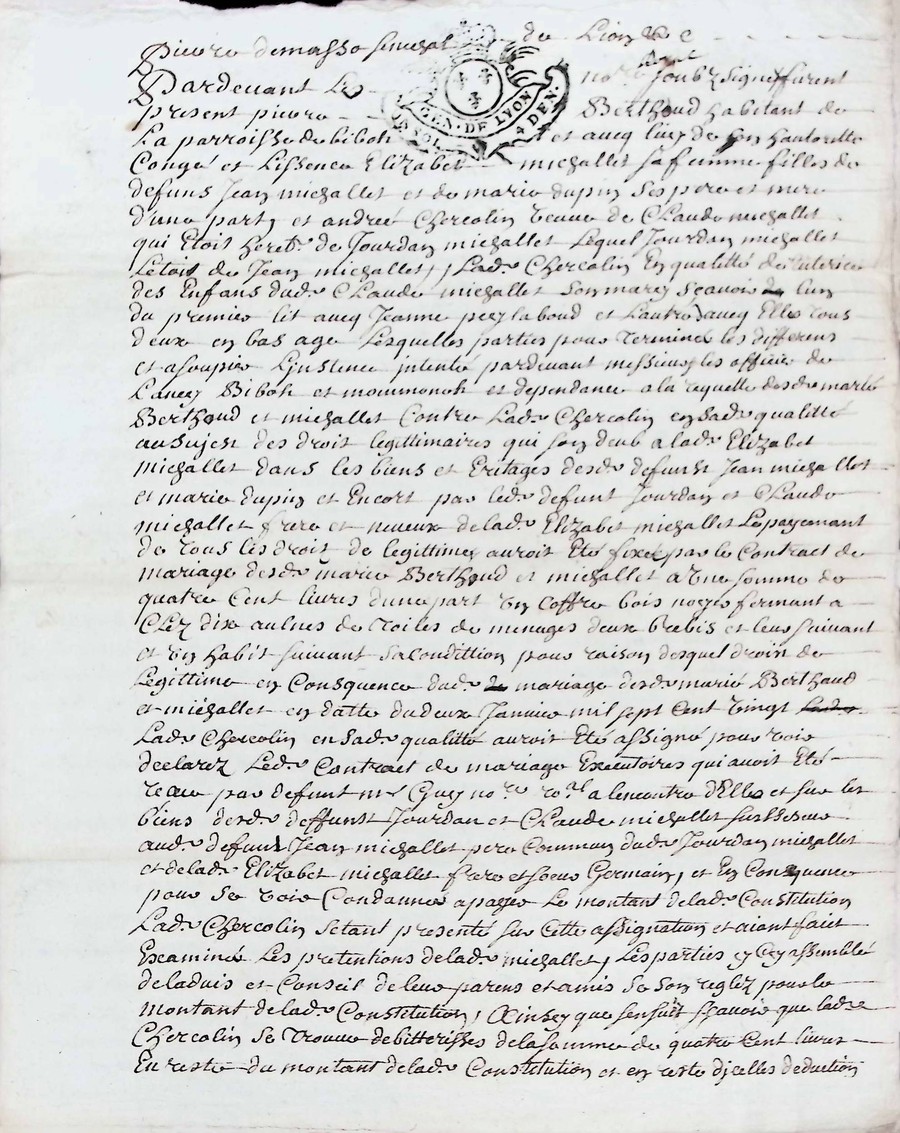 Pierre demasso senechal de Lion &c
Pardevant Le nore soubzsignes furent
present pierre Berthaud habitant de
La parroisse de biboh et aucq luy de son hautoritte
Congé et Lissence Elizabet michallet sa femme filles de
defuns Jean michallet et de marie dupin ses pere et mere
d'une part, et andreé Chercolin veuve de Claude michallet
qui Etoit heret. de Jourdan michallet Lequel Jourdan michallet
Letois de Jean michallet, Lade Chercolin En qualitté de tuterice
des Enfans dude Claude michallet son mary scavois lun
du premier lit aucq Jeanne peylaboud et Lautre aucq Elle tous
deux en bas age Lesquelles parties pour terminé les differens
et asoupir Linstence intenté pardevant messieurs les officie de
Lancy Biboh et mommonoh et dependance a la requette desde marié
Berthaud et michallet Contre Lade Chercolin en sade qualitté
au sujest des droit legittimaires qui son deub a lade Elizabet
michallet dans les biens et Eritages desde defunst Jean michallet
et marie dupin et Encort par lede defunt Jourdan et Claude
michallet frere et neveux de lade Elizabet michallet Le payemant
de tous les droit de legittime auroit Eté fixé par le Contract de
mariage desde marie Berthaud et michallet a une somme de
quatre Cent livres d'une part un coffre bois noyer fermant a
Clez dixe aulnes de toiles de menages deux brebis et leur suivant
et un habit suivant sa condittion pour raison desquel droist de
Legittime en Consquence dude mariage desde marié Berthaud
et michallet en datte du deux Janvier mil sept Cent vingt
Lade Chercolin en sade qualitté auroit Eté assigné pour voir
declarez Lede Contract de mariage Executoires qui avoit Eté
receu par defunt me Guy nore royal a lencontre d'Elle et sur les
biens desde deffunst Jourdan et Claude michallet succeseur
aude defunt Jean michallet pere Commun dude Jourdan michallet
et de lade Elizabet michallet frere et soeur Germain, et En Consquence
pour se voir Condanner a payer Le montant de lade Constitution
Lade Chercolin setant presenté sur Cette assignation et aiant faict
Examiné Les pretentions de lade michallet, Les parties y Cy assemblé
de lavis et Conseil de leur parens et amis se son reglez pour le
montant de lade Constitution, Ainsy que sensuit scavoir que lade
Chercolin se trouve debitterisses de la somme de quatre Cent livres
En reste du montant de lade Constitution et en reste djcelles deduction
GEN. DE LYON
DE SOL. 4 DEN.